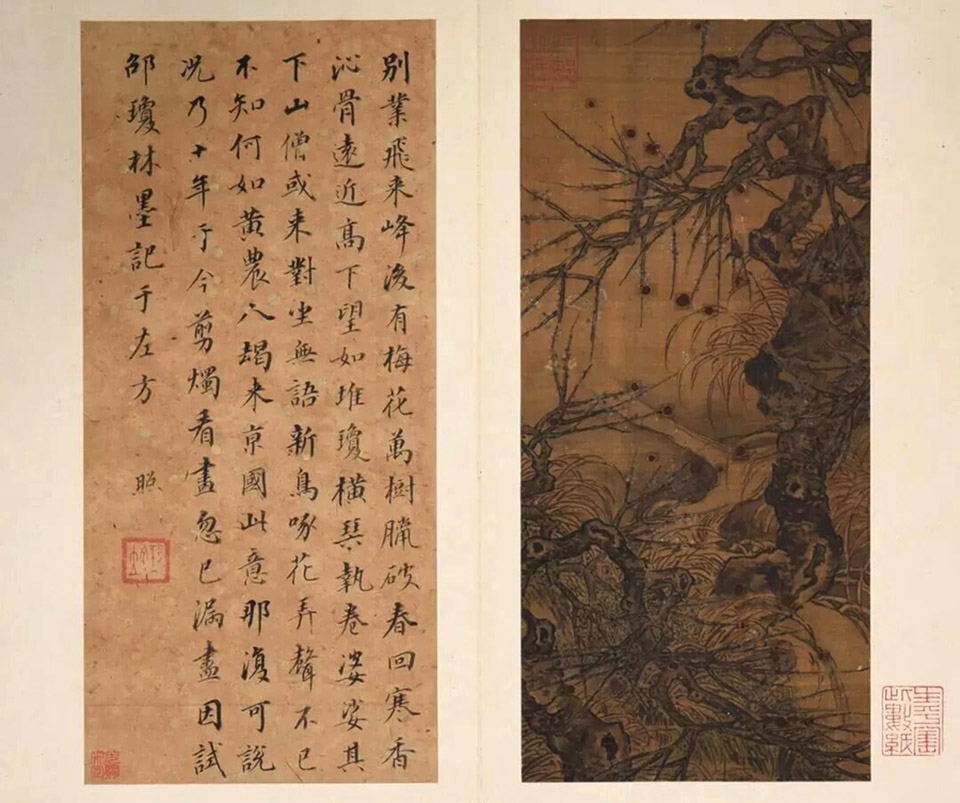 別業飛来峰後有梅花萬樹臘破春回寒香
沁骨遠近高下望如堆瓊橫琴執卷婆娑其
下山僧或来對坐無語新鳥啄花弄聲不已
不知何如黄農人朅来京國此意那復可說
况乃十年于今剪燭看畫忽已漏盡因試
邵瓊林墨記于左方
照